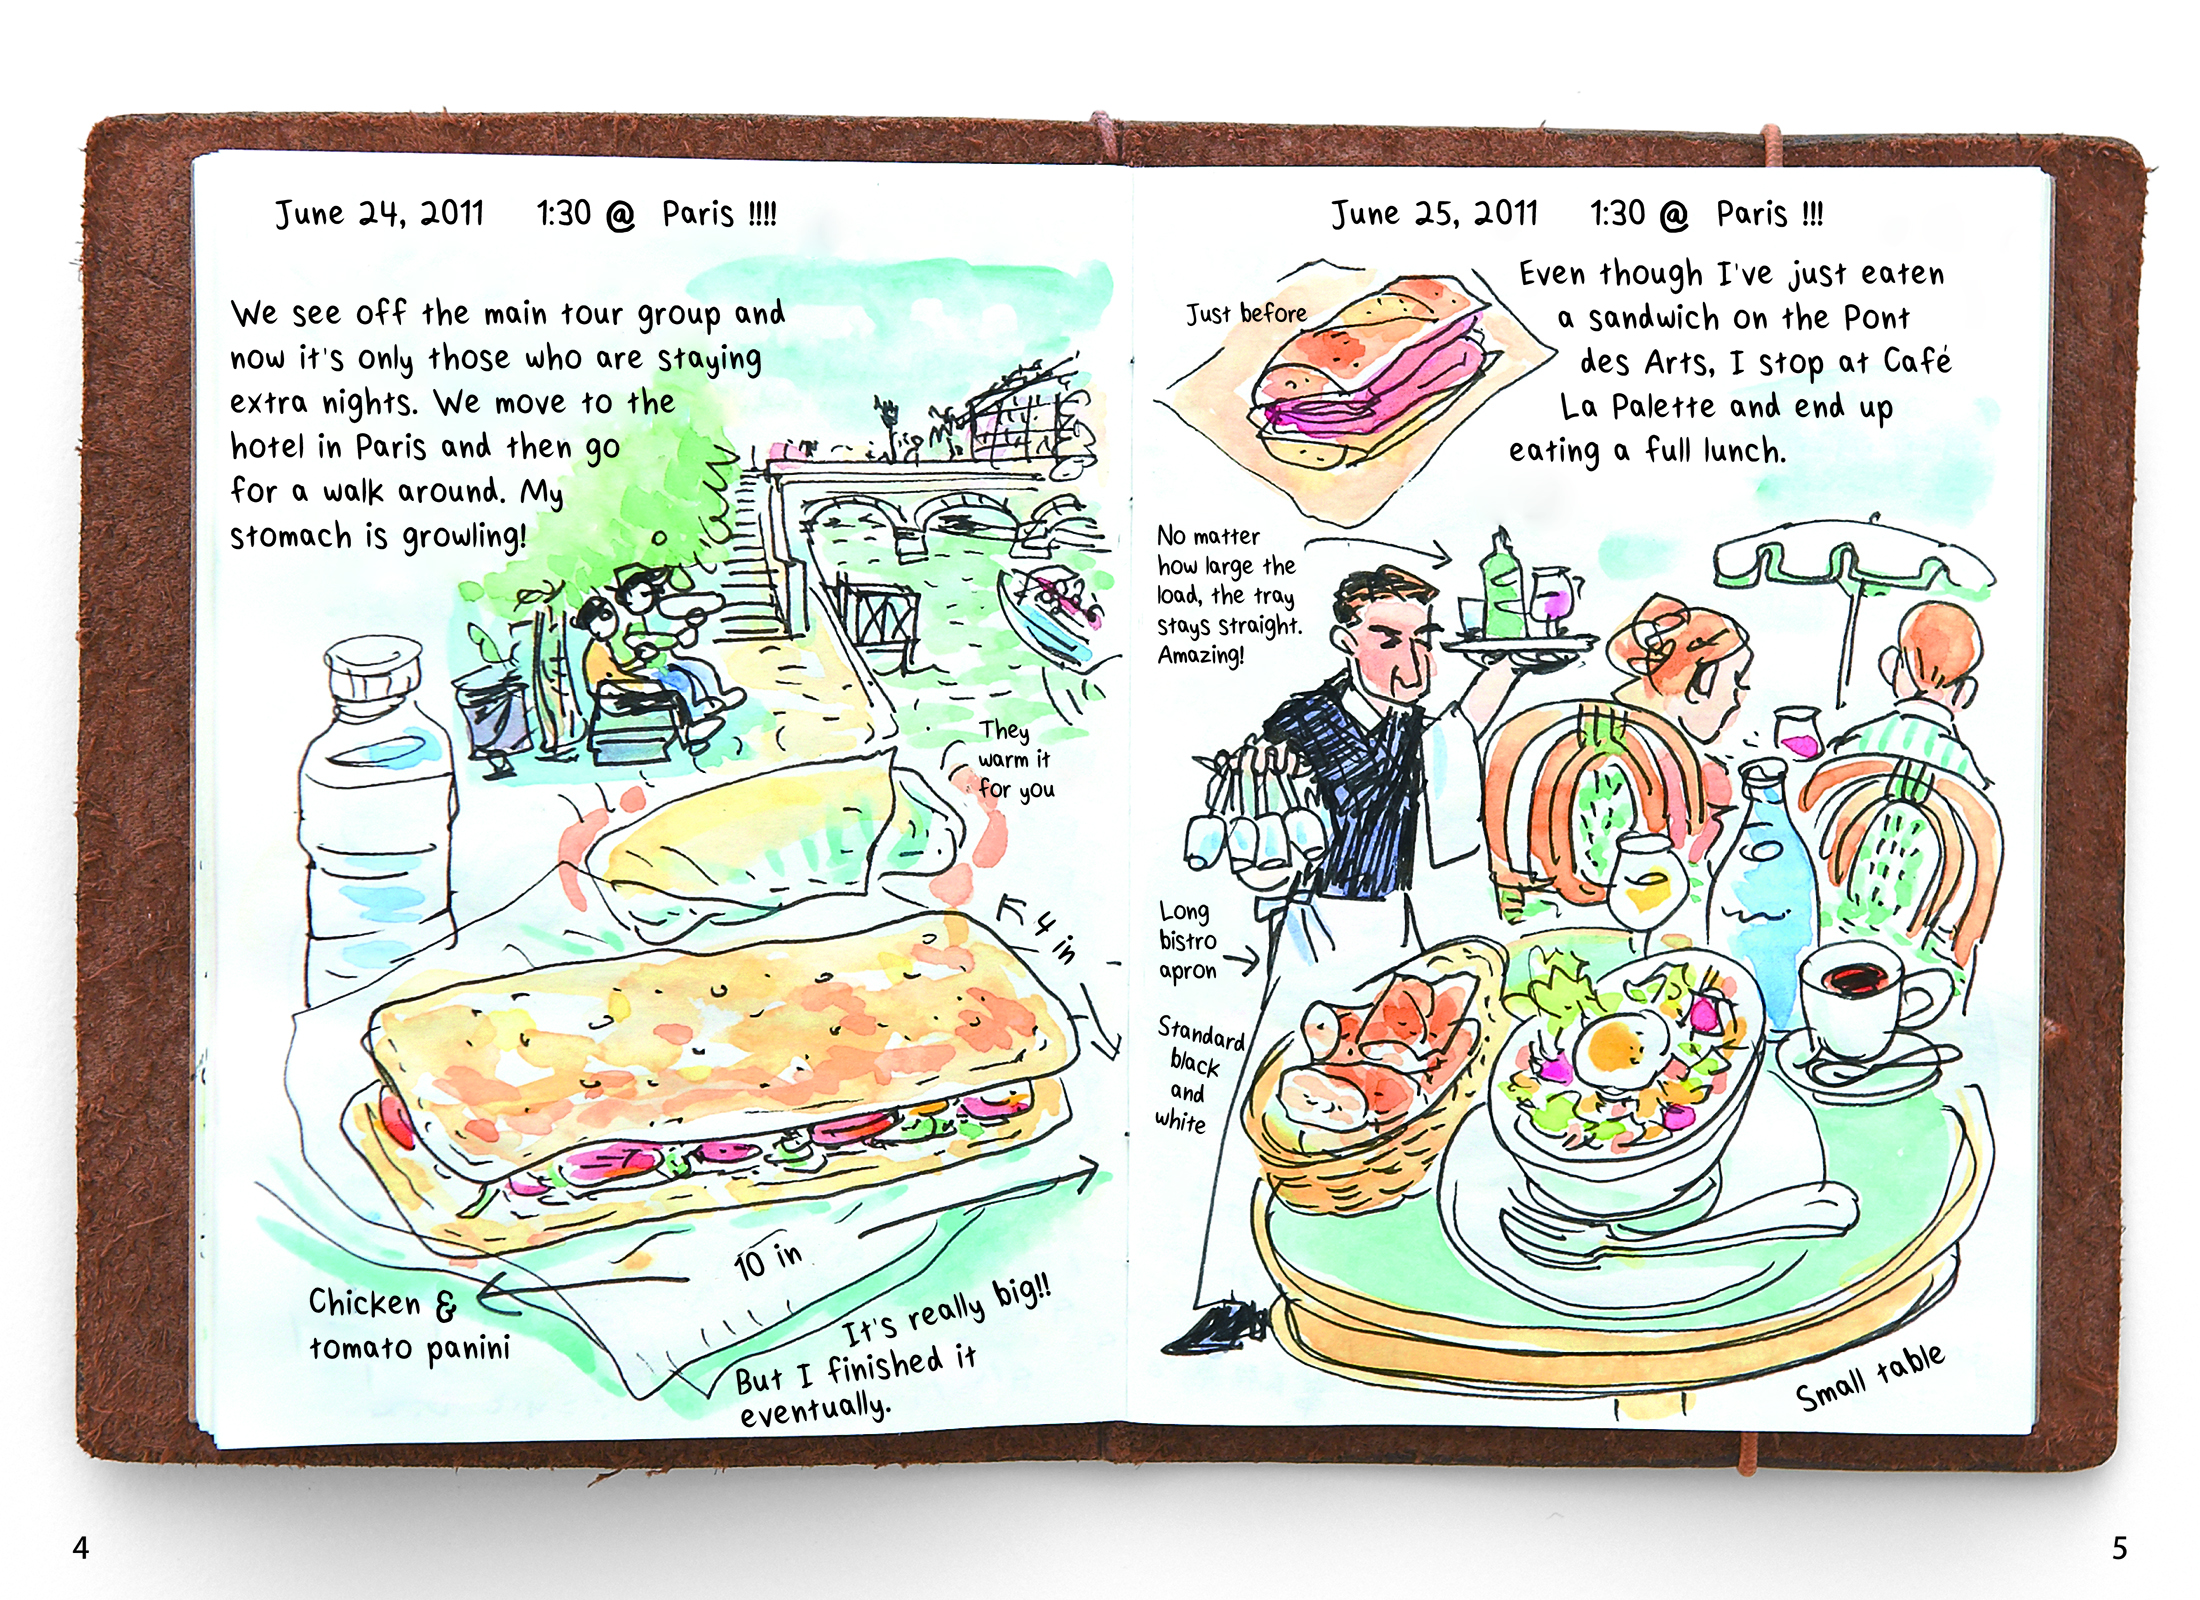 June 24, 2011 1:30 @ Paris !!!!
We see off the main tour group and
now it's only those who are staying
extra nights. We move to the
hotel in Paris and then go
for a walk around. My
stomach is growling!
They
warm it
for you
4 in
10 in
Chicken &
tomato panini
It's really big!!
But I finished it
eventually.
4
June 25, 2011 1:30 @ Paris !!!
Just before
Even though I've just eaten
a sandwich on the Pont
des Arts, I stop at Café
La Palette and end up
eating a full lunch.
No matter
how large the
load, the tray
stays straight.
Amazing!
Long
bistro
apron
Standard
black
and
white
Small table
5